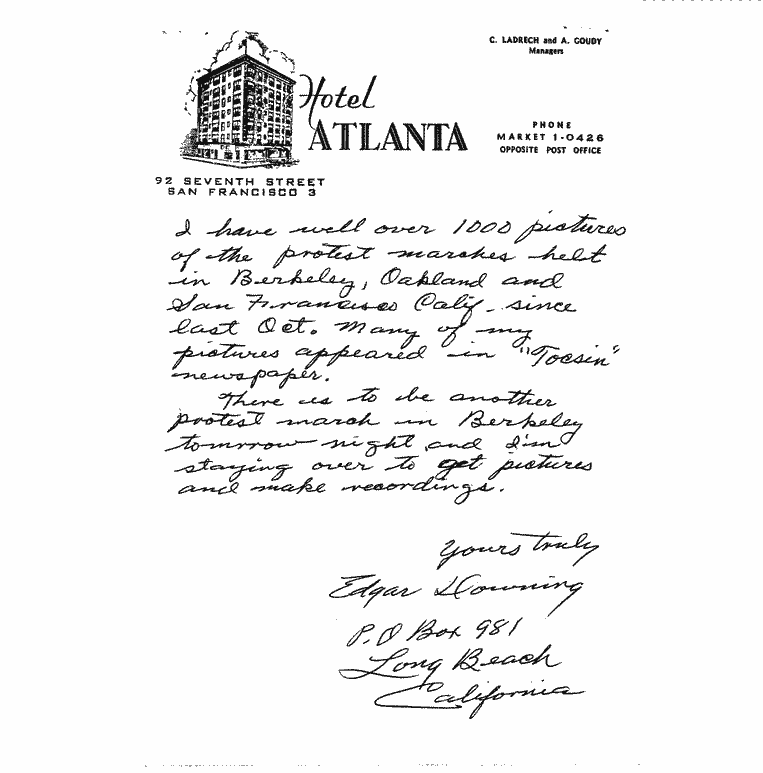 C. LADRECH and A. GOUDY
Managers
Hotel
ATLANTA
PHONE
MARKET 1-0426
OPPOSITE POST OFFICE
92 SEVENTH STREET
SAN FRANCISCO 3
I have well over 1000 pictures
of the protest marches held
in Berkeley, Oakland and
San Francisco Calif. since
last Oct. Many of my
pictures appeared in "Tocsin"
newspaper.
There is to be another
protest march in Berkeley
tomrrow night and I'm
staying over to get pictures
and make recordings.
Yours truly
Edgar Downing
P.O Box 981
Long Beach
California